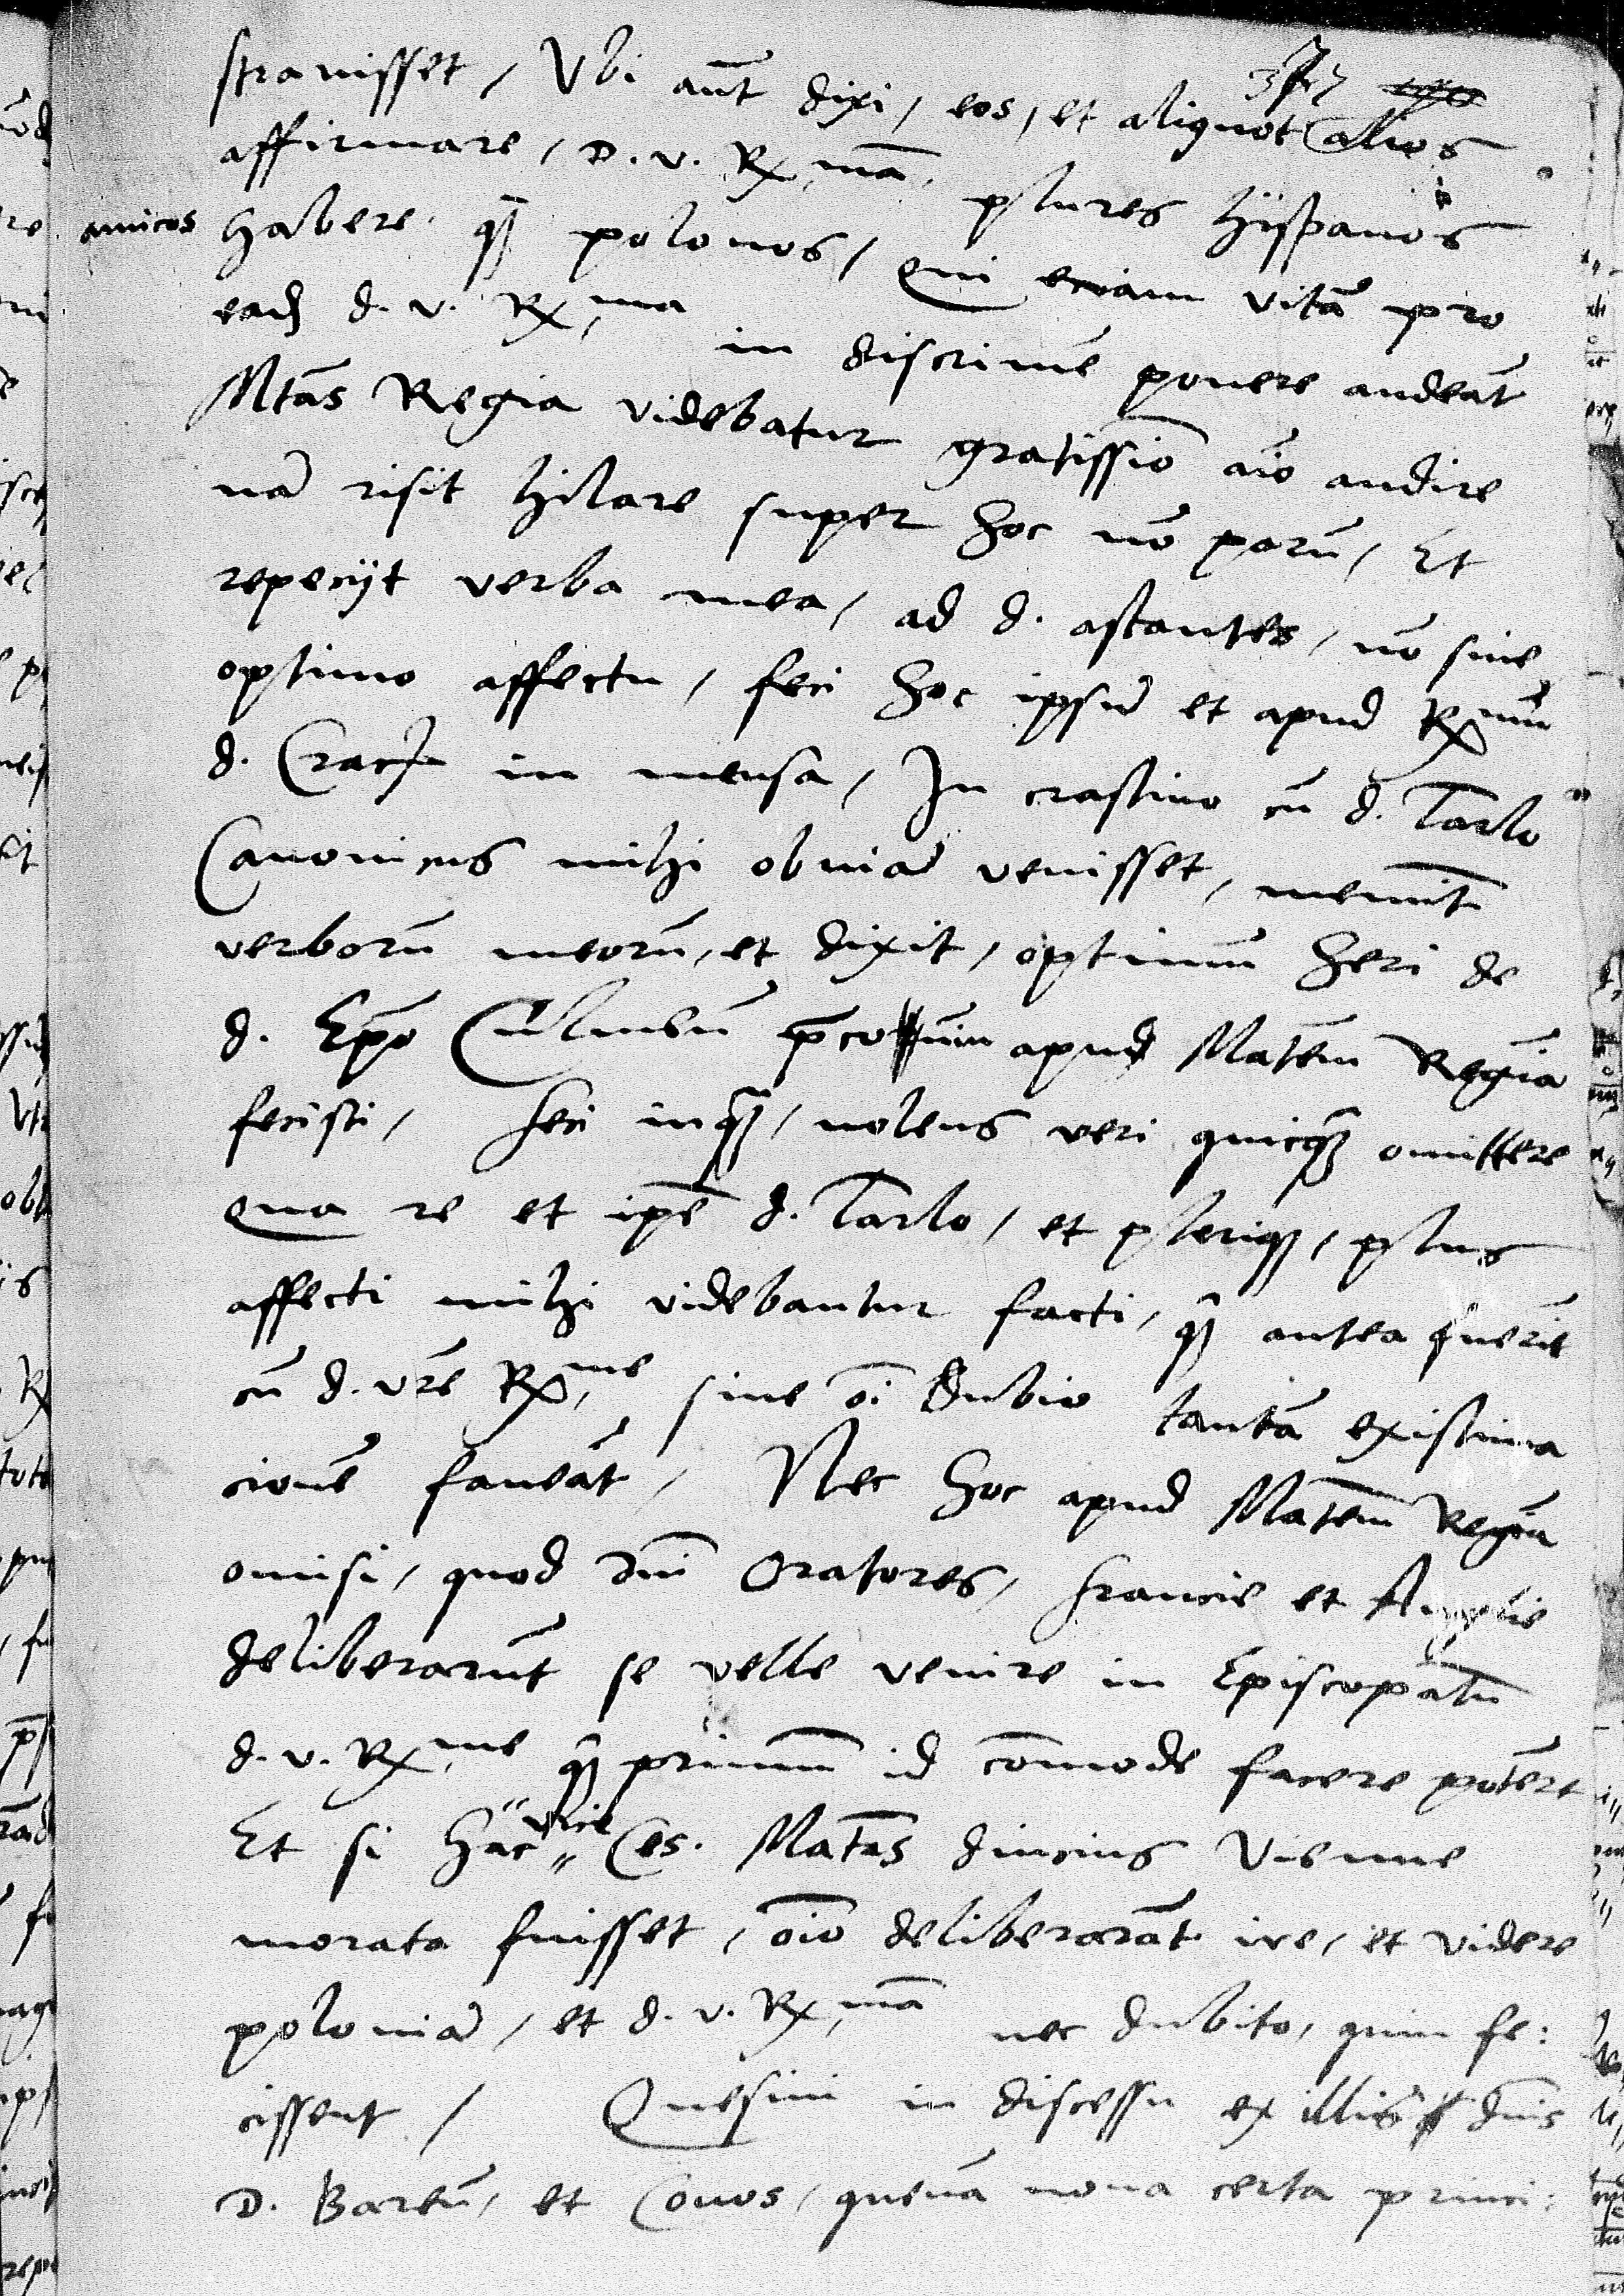 stravisset, Ubi aūt dixi, eos, et aliquot alios
affirmare, D. v. Rx,mā plures hispanos
amicos habere qȝ polonos, qui eciam vitā pro
eadȝ d. v. Rx,ma in discrimē ponere audeāt
Mtās Regia videbatur gratissīo aīo audire
nā risit hilare super hoc nō parū, Et
repeciit verba mea, ad d. astantes, nō sine
optimo affectu, feci hoc ipsū et apud Rxmū
d. Crac in mensa, In crastino cū d. Tarlo
Canonicus mihi obviā venisset, meminīt
verborū meorū, et dixit, optimum heri de
d. Epō Culmeñ p̄conium apud Matēm Regiā
fecisti, feci inqȝ, nolens veri quicqȝ omittere
qua re et ipē d. Tarlo, et pleriqȝ, plus
affecti mihi videbantur facti, qȝ antea fuerīt
cū d. vrē Rx,me sine oī dubio tantā existima
cionē faveāt, Nec hoc apud Matēm Regiā
omisi, quod dnī Oratores, francie et Anglie
deliberarūt se velle venire in Episcopatū
d. v. Rx,me qȝ primum id cōmode facere potērt
Et si hac vice Ces. Matās diucius Vienne
morata fuisset, oīo deliberarāt ire, et videre
poloniā, et d. v. Rx,mā nec dubito, quin fe:
cissent, Quesivi in discessu ex illis dnīs
D. Bareñ, et Covos, quenā nova certa princi: